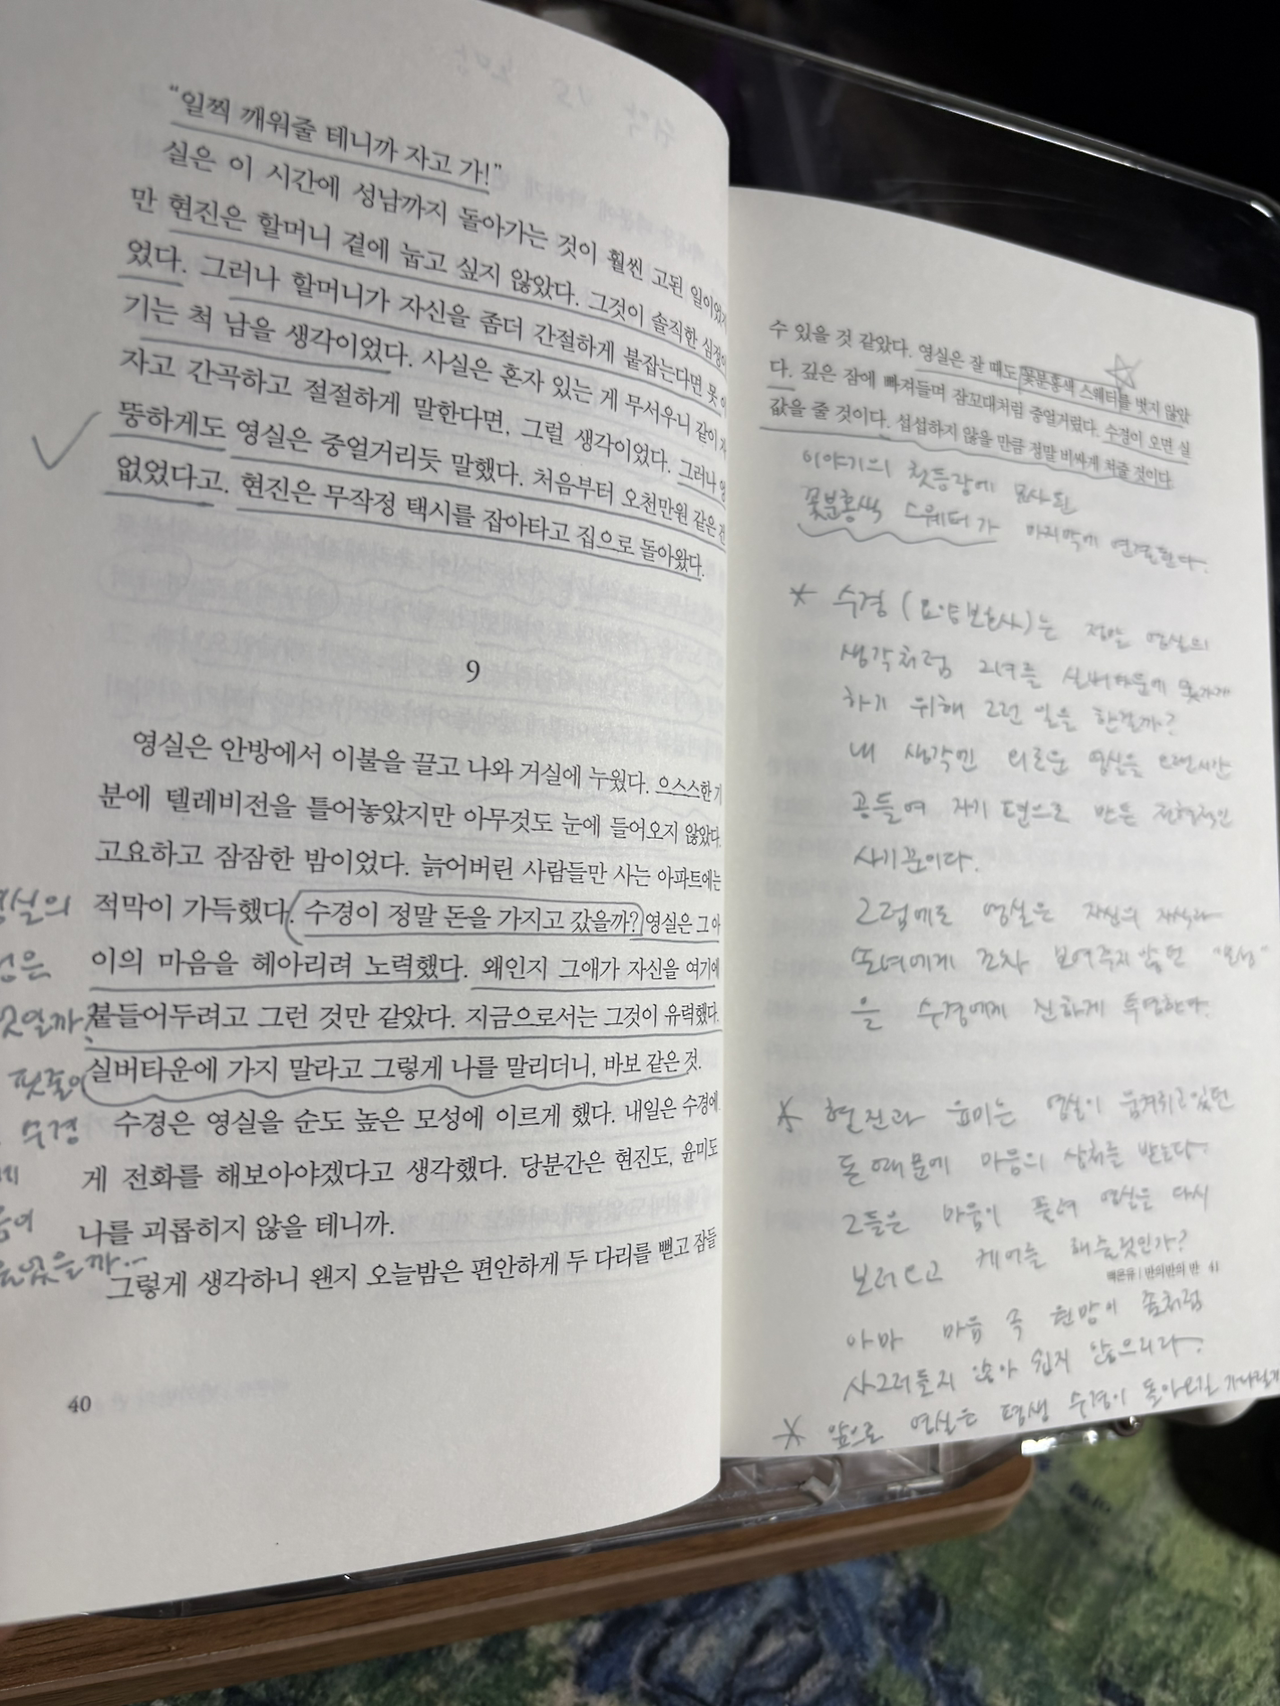 "일찍 깨워줄 테니까 자고 가!"
실은 이 시간에 성남까지 돌아가는 것이 훨씬 고된 일이었지
만 현진은 할머니 곁에 눕고 싶지 않았다. 그것이 솔직한 심정이
었다. 그러나 할머니가 자신을 좀더 간절하게 붙잡는다면 못 이
기는 척 남을 생각이었다. 사실은 혼자 있는 게 무서우니 같이
자고 간곡하고 절절하게 말한다면, 그럴 생각이었다. 그러나
뚱하게도 영실은 중얼거리듯 말했다. 처음부터 오천만원 같은 건
없었다고. 현진은 무작정 택시를 잡아타고 집으로 돌아왔다.
9
영실은 안방에서 이불을 끌고 나와 거실에 누웠다. 으스스한 기
분에 텔레비전을 틀어놓았지만 아무것도 눈에 들어오지 않았다.
고요하고 잠잠한 밤이었다. 늙어버린 사람들만 사는 아파트에는
적막이 가득했다. 수경이 정말 돈을 가지고 갔을까? 영실은 그 아
이의 마음을 헤아리려 노력했다. 왜인지 그애가 자신을 여기에
붙들어두려고 그런 것만 같았다. 지금으로서는 그것이 유력했다.
실버타운에 가지 말라고 그렇게 나를 말리더니, 바보 같은 것.
수경은 영실을 순도 높은 모성에 이르게 했다. 내일은 수경에
게 전화를 해보아야겠다고 생각했다. 당분간은 현진도, 윤미도
나를 괴롭히지 않을 테니까.
그렇게 생각하니 왠지 오늘밤은 편안하게 두 다리를 뻗고 잠들
40
영실의
핏줄이
수경
수 있을 것 같았다. 영실은 잘 때도 꽃분홍색 스웨터를 벗지 않았
다. 깊은 잠에 빠져들며 잠꼬대처럼 중얼거렸다. 수경이 오면 실
값을 줄 것이다. 섭섭하지 않을 만큼 정말 비싸게 쳐줄 것이다.
이야기의 첫등장에 묘사된
꽃분홍색 스웨터가 마지막에 연결된다.
* 수경(요양보호사)는 정말 영실의
생각처럼 그녀를 실버타운에 못가게
하기 위해 그런 일을 한걸까?
내 생각엔 외로운 영실을 오랜시간
공들여 자기 편으로 만든 전형적인
사기꾼이다.
그럼에도 영실은 자신의 자식과
손녀에게 조차 보여주지 않던 "모성"
을 수경에게 진하게 투영한다.
* 현진과 윤미는 영실이 움켜쥐고있던
돈 때문에 마음의 상처를 받는다.
그들은 마음이 풀려 영실을 다시
보러오고 케어를 해줄것인가?
백온유 | 반의반의 반 41
아마 마음 속 원망이 숲처럼
사그러들지 않아 쉽지 않으리라.
* 앞으로 영실은 평생 수경이 돌아오길